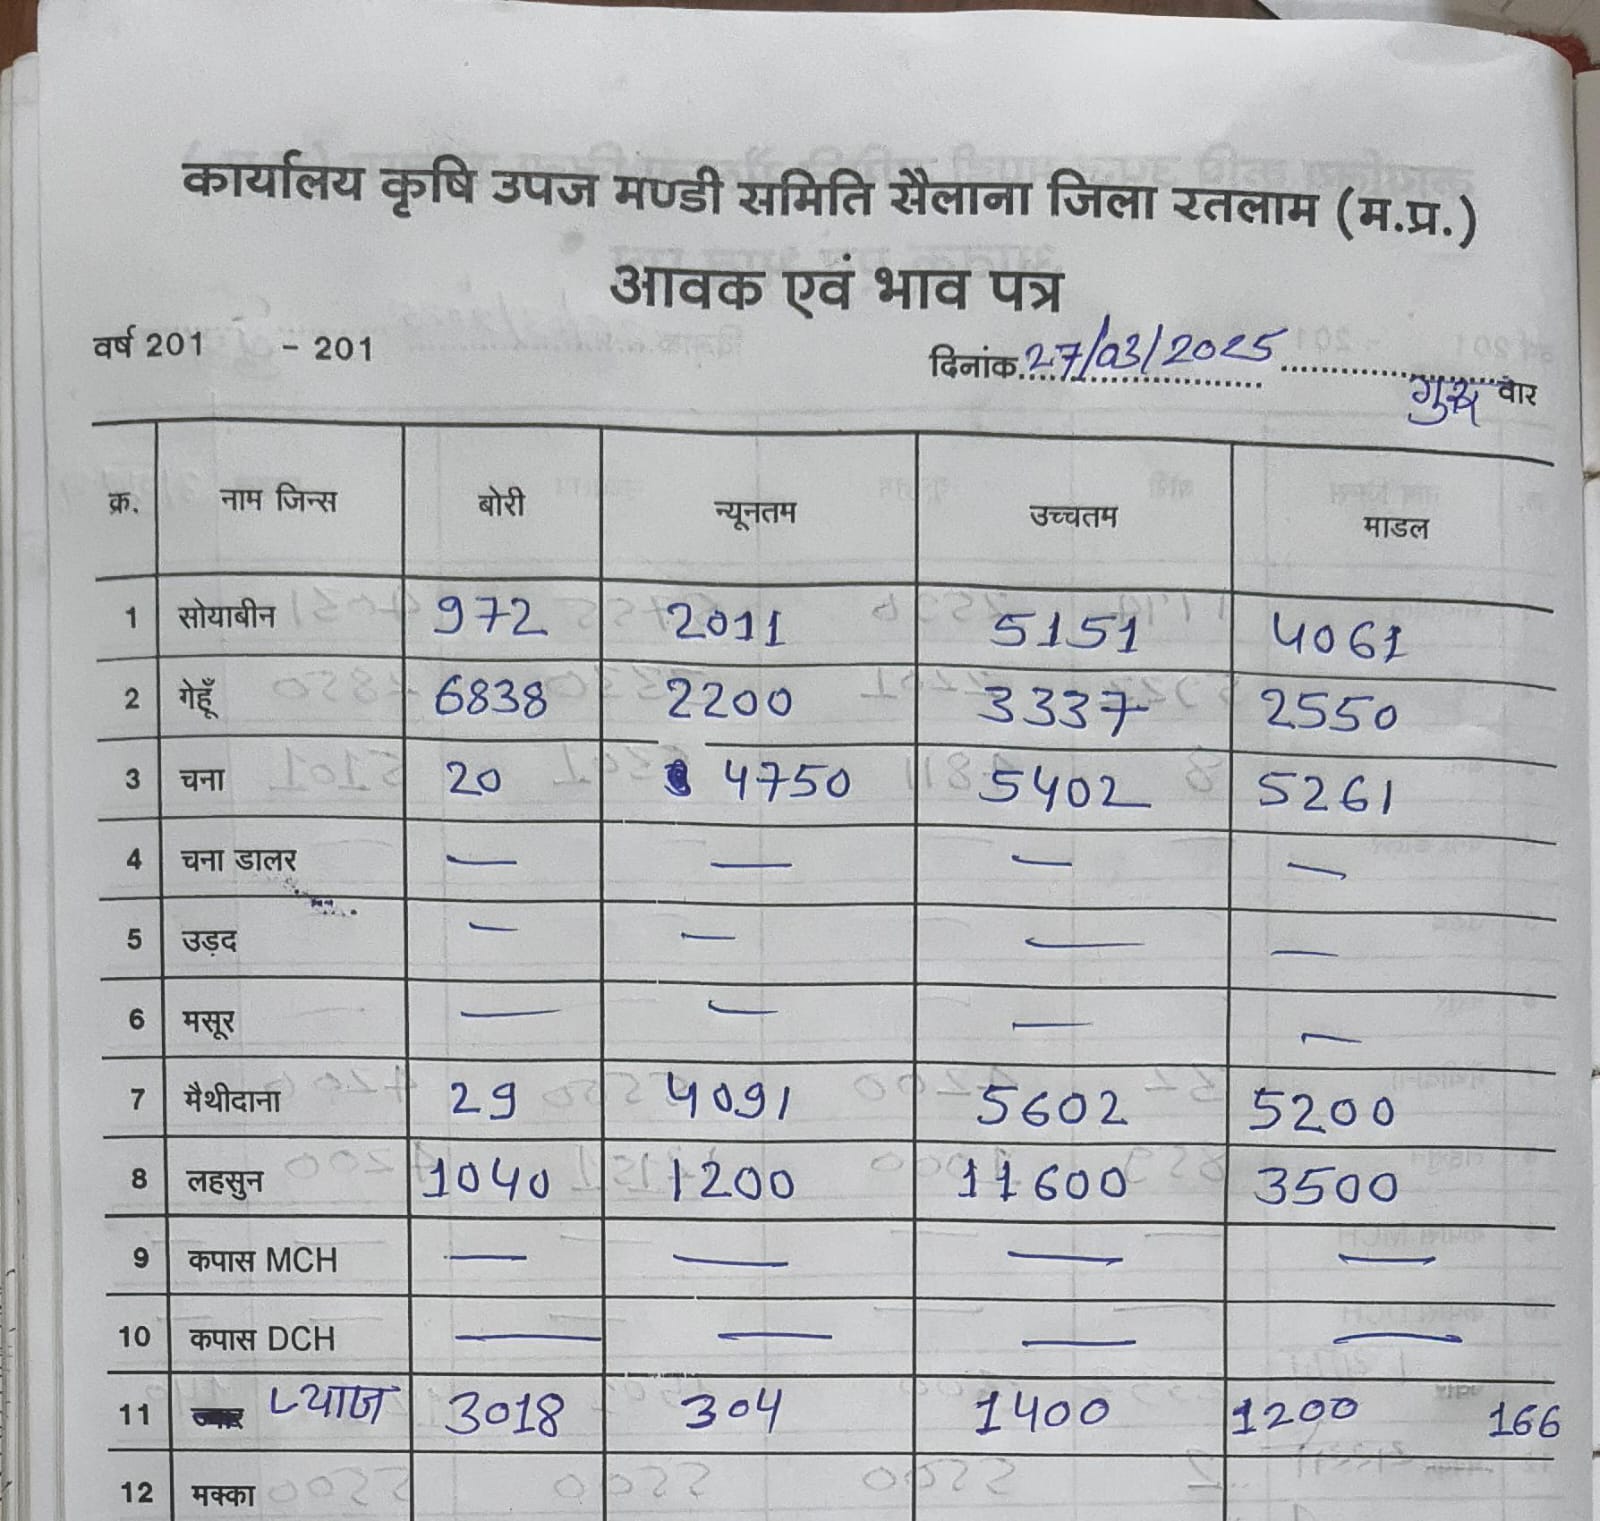 कार्यालय कृषि उपज मण्डी समिति सैलाना जिला रतलाम (म.प्र.)
आवक एवं भाव पत्र
वर्ष 201 - 201 दिनांक 27/03/2025
गुरू वार
क्र. नाम जिन्स बोरी न्यूनतम उच्चतम माडल
1 सोयाबीन 972 2011 5151 4061
2 गेहूँ 6838 2200 3337 2550
3 चना 20 4750 5402 5261
4 चना डालर — — — —
5 उड़द — — — —
6 मसूर — — — —
7 मैथीदाना 29 4091 5602 5200
8 लहसुन 1040 1200 11600 3500
9 कपास MCH — — — —
10 कपास DCH — — — —
11 प्याज 3018 304 1400 1200 166
12 मक्का